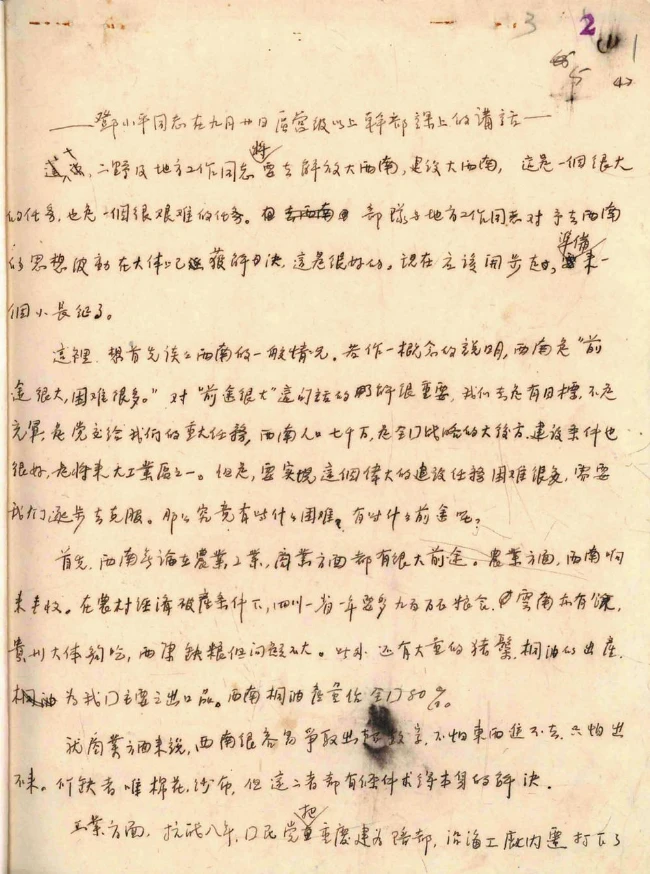 3 2 1
鄧小平同志在九月廿日區营级以上幹部課上的講話
二野及地方工作同志要去解放大西南,建设大西南,這是一個很大
的任务,也是一個很艰难的任务。部隊与地方工作同志对于去西南
的思想波動在大体上已經獲解决,這是很好的。現在应該開步走,準備來一
個小長征了。
這裡想首先谈谈西南的一般情况。若作一概念的說明,西南是“前
途很大,困难很多。”对“前途很大”這句話的了解很重要,我们去是有目標,不是
充軍,是党交给我们的重大任務,西南人口七千万,是全囗战略的大後方,建设条件也
很好,是将來大工業區之一。但是,要实现這個偉大的建设任務困难很多,需要
我们逐步去克服。那么究竟有些什么困难,有些什么前途呢?
首先,西南無論在農業,工業,商業方面都有很大前途。農業方面,西南向
來丰收。在農村经濟破產条件下,四川一省一年要多九百万石粮食,雲南亦有餘,
貴州大体夠吃,西康缺糧但问题不大。此外还有大量的猪鬃,桐油的出產,
桐油為我囗主要之出口品。西南桐油產量佔全囗80%。
就商業方面來説,西南很容易爭取出超数字,不怕東西進不去,只怕出
不來。所缺者唯棉花,沙布,但這二者都有條件求得本身的解决。
工業方面,抗战八年,囗民党把重慶建为陪都,沿海工廠内遷打下了